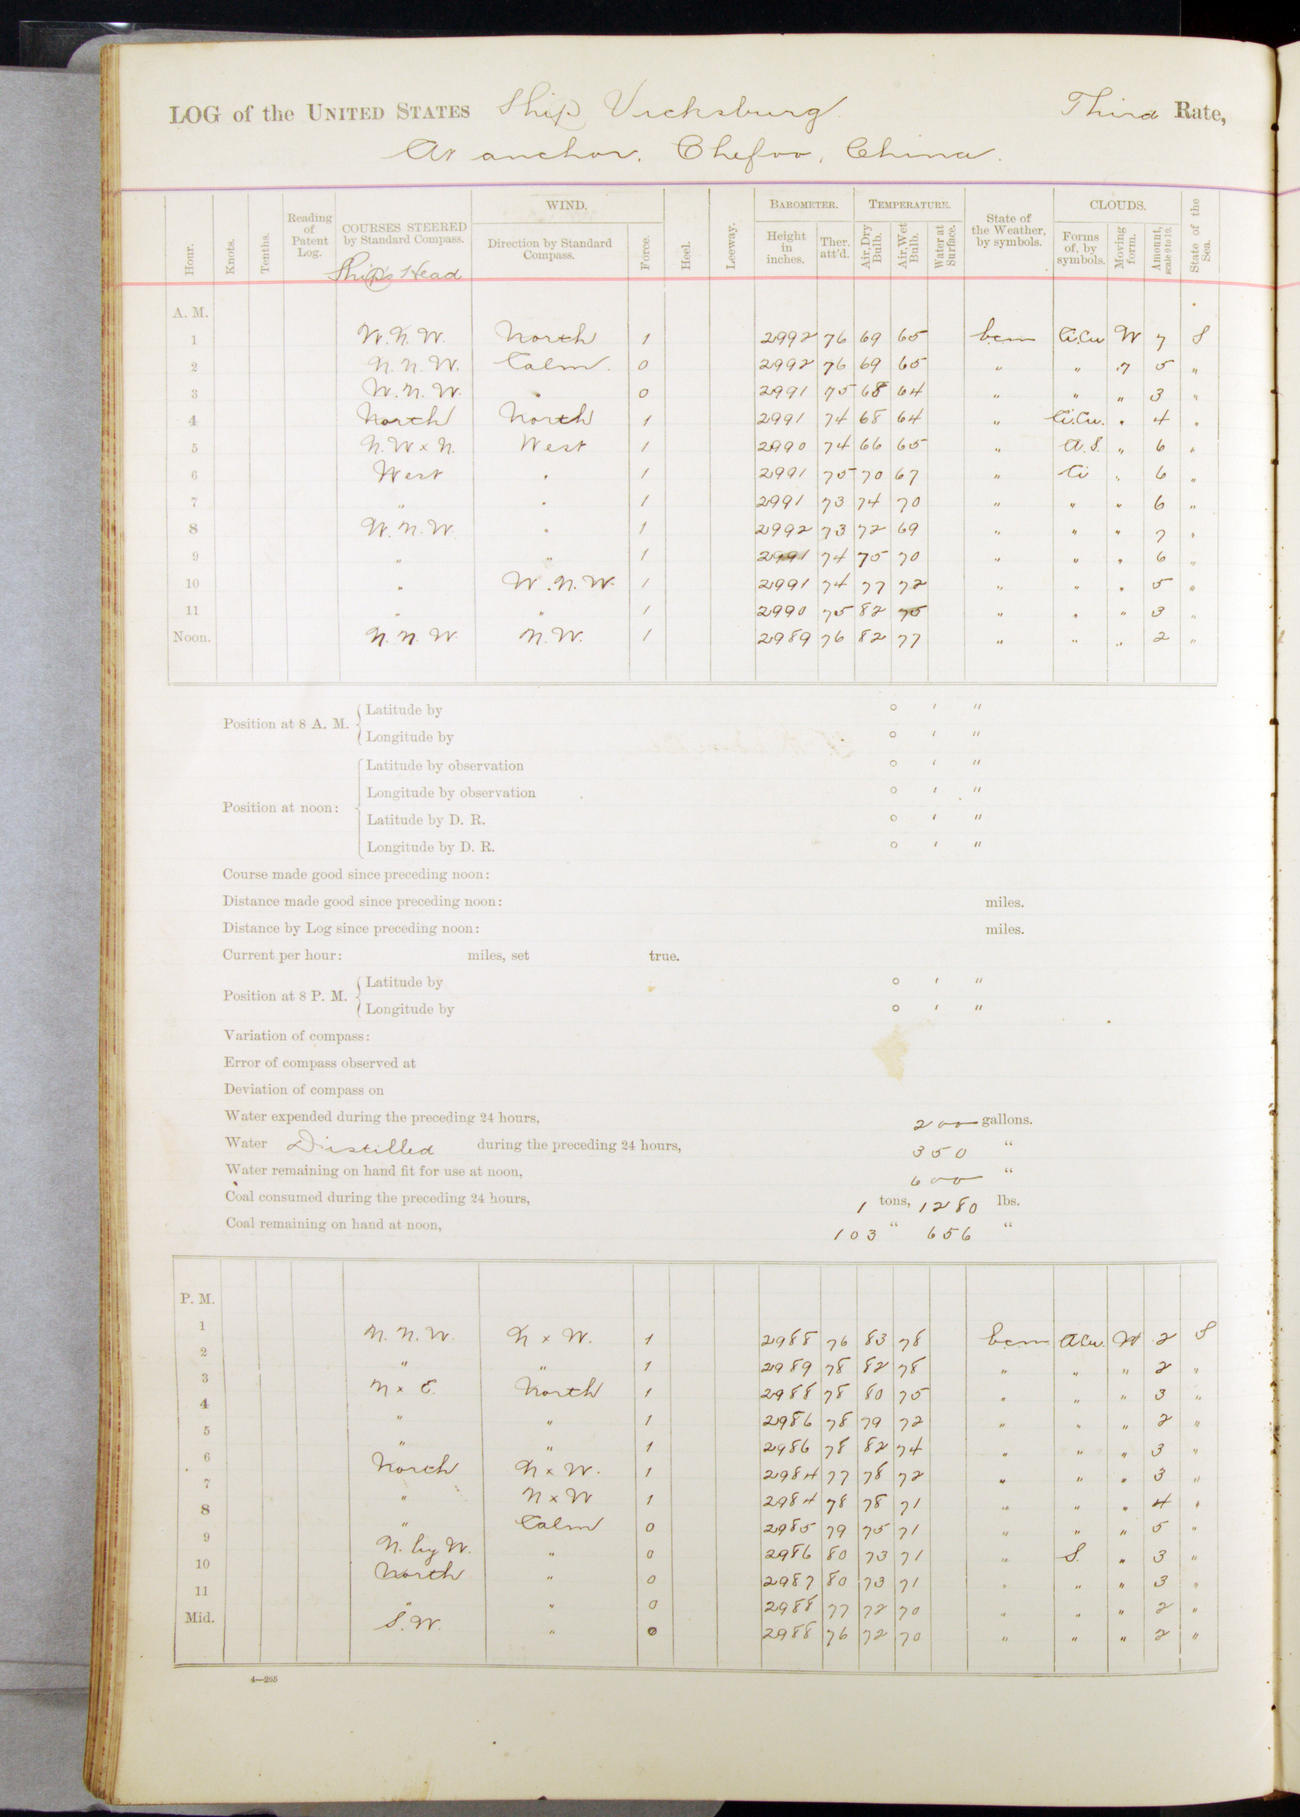 LOG of the UNITED STATES Ship Vicksburg. Third Rate,
At anchor, Chefoo, China.
Hour. Knots. Tenths. Reading of Patent Log. COURSES STEERED by Standard Compass. WIND. Direction by Standard Compass. Force. Heel. Leeway. BAROMETER. Height in inches. Ther. att'd. TEMPERATURE. Air, Dry Bulb. Air, Wet Bulb. Water at Surface. State of the Weather, by symbols. CLOUDS. Forms of, by symbols. Moving form. Amount, scale 0 to 10. State of the Sea.
Ship's Head
A. M.
1 W.N.W. North 1 2992 76 69 65 bcm Ci.Cu W 7 S
2 N.N.W. Calm. 0 2992 76 69 65 " " " 5 "
3 W.N.W. " 0 2991 75 68 64 " " " 3 "
4 North North 1 2991 74 68 64 " Ci.Cu. " 4 "
5 N.W x N. West 1 2990 74 66 65 " A.S. " 6 "
6 West " 1 2991 75 70 67 " Ci " 6 "
7 " " 1 2991 73 74 70 " " " 6 "
8 W.N.W. " 1 2992 73 72 69 " " " 7 "
9 " " 1 2991 74 75 70 " " " 6 "
10 " W.N.W. 1 2991 74 77 72 " " " 5 "
11 " " 1 2990 75 82 75 " " " 3 "
Noon. N.N.W N.W. 1 2989 76 82 77 " " " 2 "
Position at 8 A. M. Latitude by ° ′ ″
Longitude by ° ′ ″
Position at noon: Latitude by observation ° ′ ″
Longitude by observation ° ′ ″
Latitude by D. R. ° ′ ″
Longitude by D. R. ° ′ ″
Course made good since preceding noon:
Distance made good since preceding noon: miles.
Distance by Log since preceding noon: miles.
Current per hour: miles, set true.
Position at 8 P. M. Latitude by ° ′ ″
Longitude by ° ′ ″
Variation of compass:
Error of compass observed at
Deviation of compass on
Water expended during the preceding 24 hours, 200 gallons.
Water Distilled during the preceding 24 hours, 350 "
Water remaining on hand fit for use at noon, 600 "
Coal consumed during the preceding 24 hours, 1 tons, 1280 lbs.
Coal remaining on hand at noon, 103 " 656 "
P. M.
1 N.N.W. N x W. 1 2988 76 83 78 bcm A.Cu. W 2 S
2 " " 1 2989 78 82 78 " " " 2 "
3 N x E. North 1 2988 78 80 75 " " " 3 "
4 " " 1 2986 78 79 72 " " " 2 "
5 " " 1 2986 78 82 74 " " " 3 "
6 North N x W. 1 2984 77 78 72 " " " 3 "
7 " N x W 1 2984 78 78 71 " " " 4 "
8 " Calm 0 2985 79 75 71 " " " 5 "
9 N. by W. " 0 2986 80 73 71 " S. " 3 "
10 North " 0 2987 80 73 71 " " " 3 "
11 " " 0 2988 77 72 70 " " " 2 "
Mid. S.W. " 0 2988 76 72 70 " " " 2 "
4—265